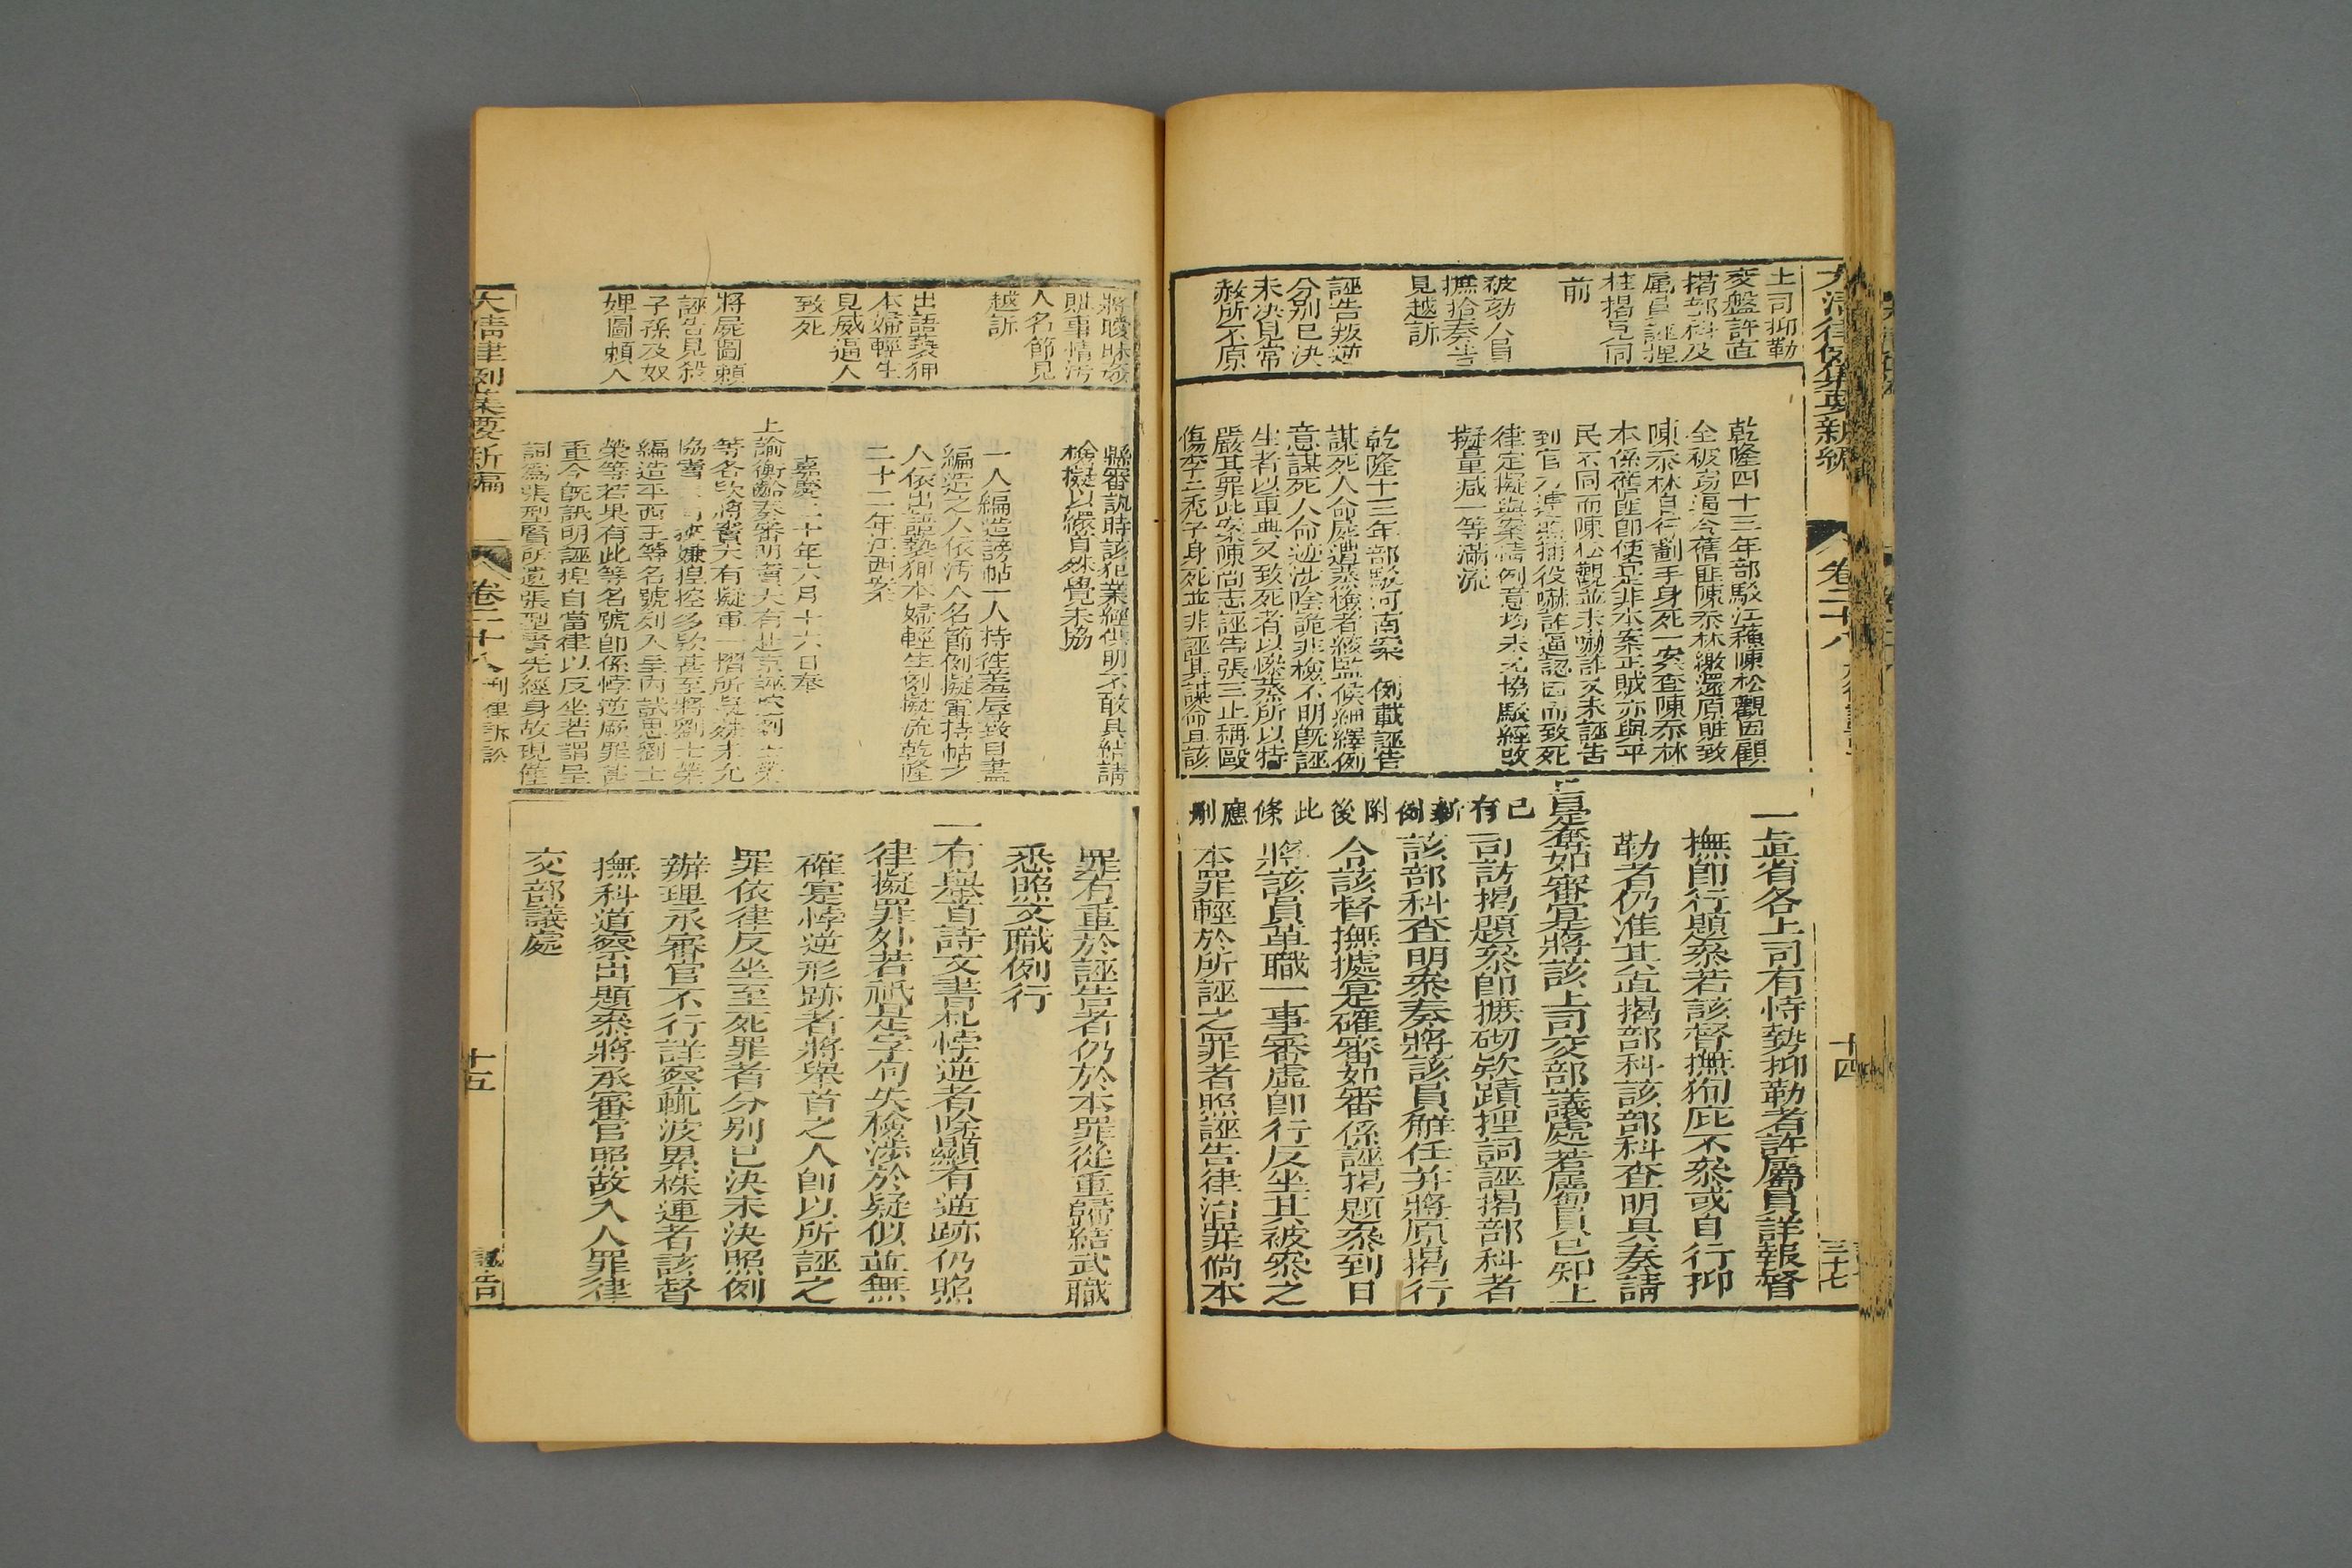 大清律例集要新編
卷二十八
十四
三十七
上司抑勒
交盤許直
揭部科及
屬員誣捏
枉揭見同
前
被劾人員
摭拾奏告
見越訴
誣告叛逆
分别已決
未決見常
赦所不原
乾隆四十三年部駁江蘓陳松觀因顧
全被窃逼令舊匪陳忝林繳還原賍致
陳忝林自行劃手身死一案查陳忝林
本係舊匪即使定非本案正賊亦與平
民不同而陳松觀並未嚇詐又未誣告
到官
捕役嚇詐逼認因而致死
律定擬與案情例意均未允協駁經改
擬量减一等滿流
乾隆十三年部駁河南案 例載誣告
謀死人命屍遭蒸檢者絞監候細繹例
意謀死人命迹涉陰詭非檢不明旣誣
生者以重典又致死者以慘蒸所以特
嚴其罪此案陳尚志誣告張三止稱毆
傷李二禿子身死並非誣其謀命且該
一直省各上司有恃勢抑勒者許屬員詳報督
撫即行題叅若該督撫狥庇不叅或自行抑
勒者仍准其直揭部科該部科查明具奏請
旨定奪如審實將該上司交部議處若屬員已知上
司訪揭題叅即摭砌欵蹟捏詞誣揭部科者
該部科查明叅奏將該員解任并將原揭行
令該督撫據實確審如審係誣揭題叅到日
將該員革職一事審虛即行反坐其被叅之
本罪輕於所誣之罪者照誣告律治罪倘本
已有新例附後此條應刪
將曖昧姦
賍事情汚
人名節見
越訴
出語褻狎
本婦輕生
見威逼人
致死
將屍圖賴
誣告見殺
子孫及奴
婢圖賴人
縣審訊時該犯業經供明不敢具結請
檢擬以繯首殊覺未協
一人編造謗帖一人持徃羞辱致自盡
編造之人依汚人名節例擬軍持帖之
人依出語褻狎本婦輕生例擬流乾隆
二十二年江西案
嘉慶二十年六月十六日奉
上諭衡齡奏審明賈大有赴京誣控劉士榮
等各欵將賈大有擬軍一摺所擬殊未允
協賈
挾嫌揑控多欵甚至將劉士榮
編造平西王等名號列入呈内試思劉士
榮等若果有此等名號即係悖逆厥罪甚
重今旣訊明誣揑自當律以反坐若謂呈
詞為張型賢所遺張型賢先經身故現僅
罪有重於誣告者仍於本罪從重歸結武職
悉照文職例行
一有舉首詩文書札悖逆者除顯有逆跡仍照
律擬罪外若祇是字句失檢涉於疑似並無
確定悖逆形跡者將舉首之人即以所誣之
罪依律反坐至死罪者分别已決未決照例
辦理承審官不行詳察輒波累株連者該督
撫科道察出題叅將承審官照故入人罪律
交部議處
大清律例集要新編
卷二十八
刑律訴訟
十五
誣告